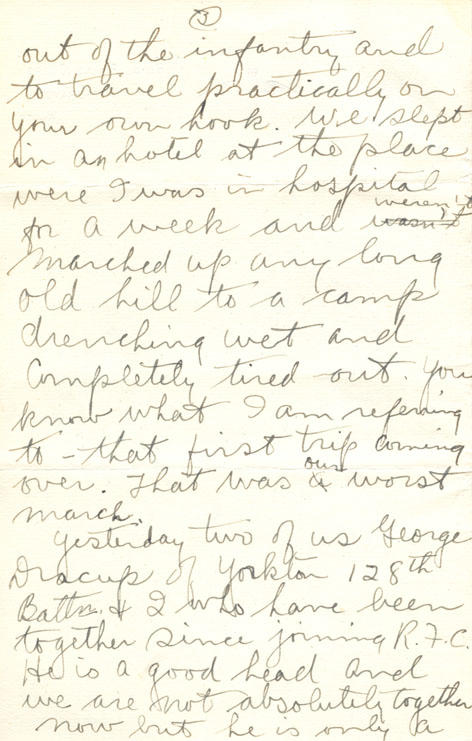 3
out of the infantry and
to travel practically on
your own hook. We slept
in an hotel at the place
were I was in hospital
for a week and wasn't weren't
marched up any long
old hill to a camp
drenching wet and
Completely tired out. You
know what I am refering
to - that first trip coming
over. That was a our worst
march.
Yesterday two of us George
Dracup of Yorkton 128th
Battn. & I who have been
together since joining R.F.C.
He is a good head and
we are not absolutely together
now but he is only a